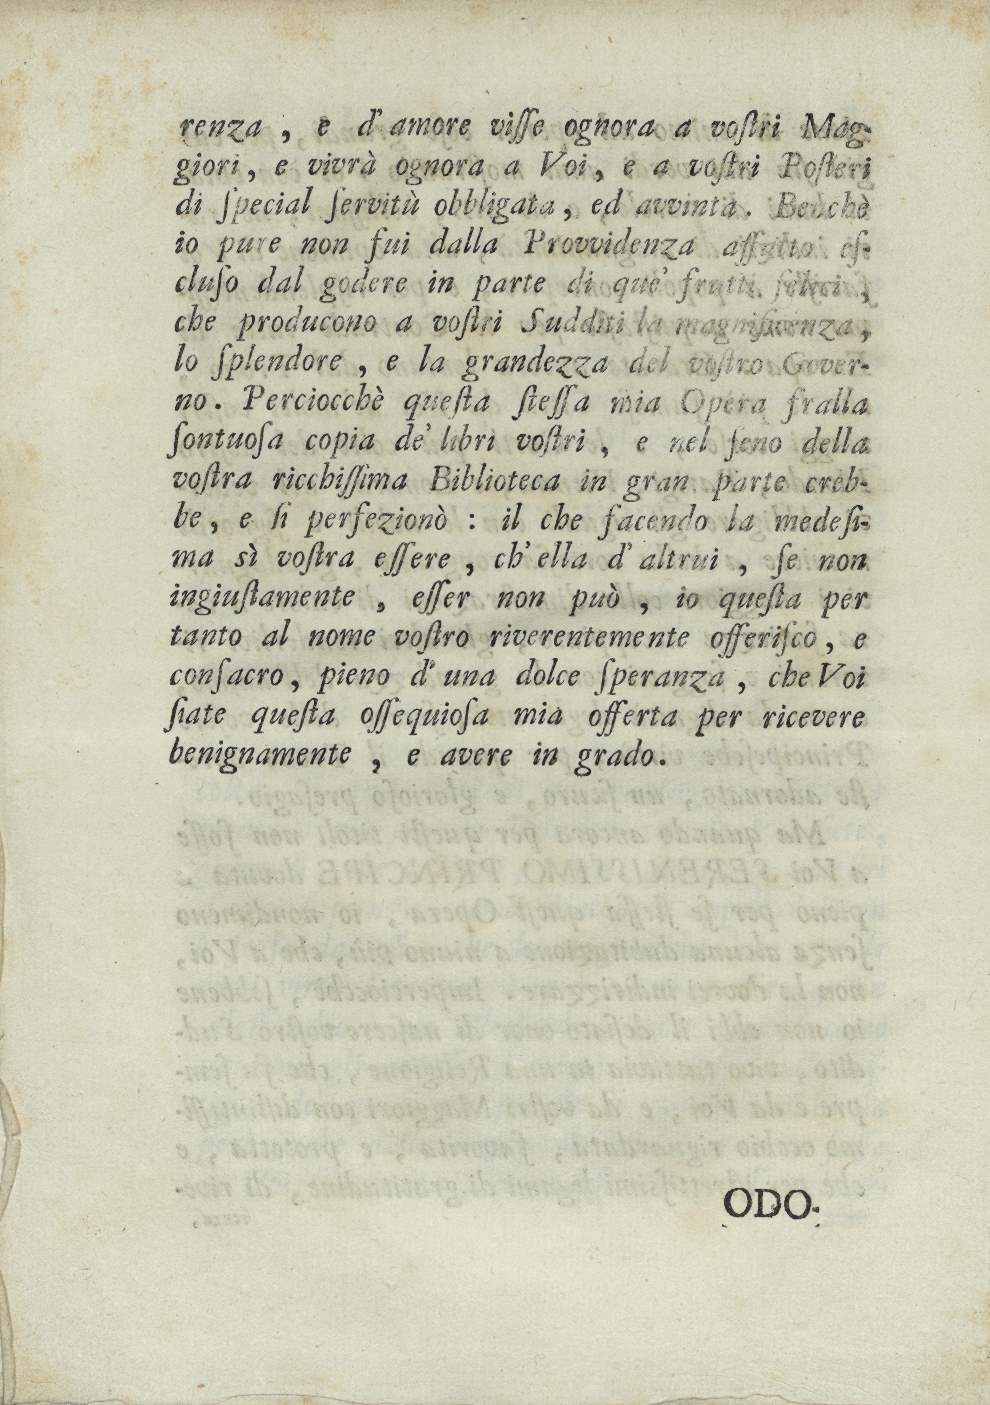 renza , e d' amore viſſe ognora a voſtri Mag-
giori, e vivrà ognora a Voi, e a voſtri Poſteri
di ſpecial ſervitù obbligata, ed avvinta. Benchè
io pure non fui dalla Provvidenza affatto eſ-
cluſo dal godere in parte di que' frutti felici ,
che producono a voſtri Sudditi la magnificenza,
lo ſplendore , e la grandezza del voſtro Gover-
no. Perciocchè queſta ſteſſa mia Opera fralla
ſontuoſa copia de' libri voſtri , e nel ſeno della
voſtra ricchiſſima Biblioteca in gran parte creb-
be, e ſi perfezionò : il che facendo la medeſi-
ma sì voſtra eſſere , ch' ella d' altrui , ſe non
ingiuſtamente , eſſer non può , io queſta per
tanto al nome voſtro riverentemente offeriſco, e
conſacro, pieno d' una dolce ſperanza , che Voi
ſiate queſta oſſequioſa mia offerta per ricevere
benignamente , e avere in grado.
ODO-